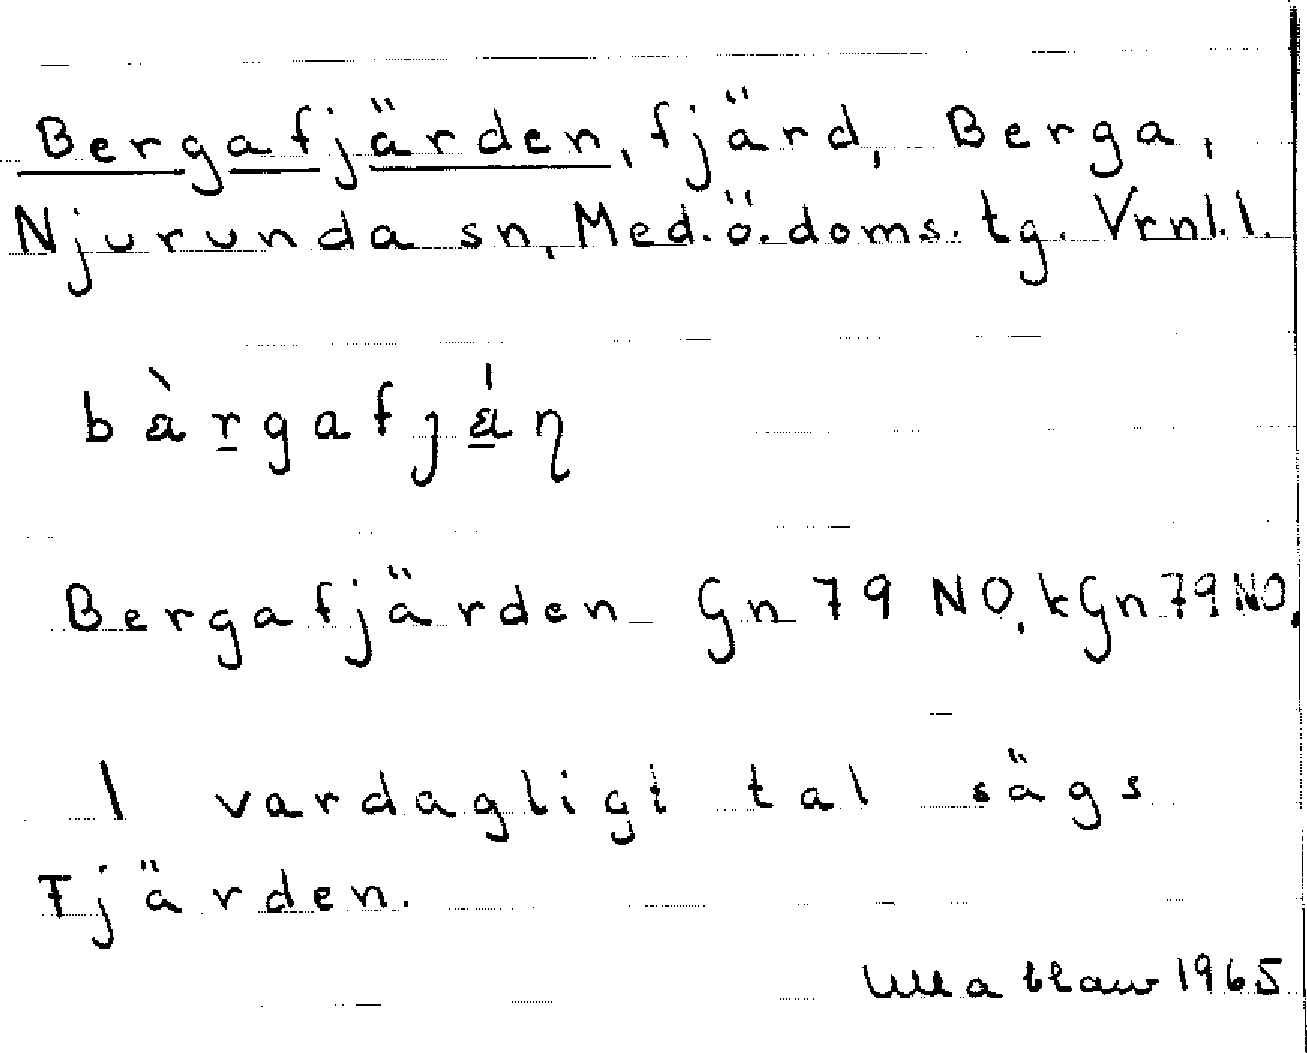 Bergafjärden, fjärd, Berga,
Njurunda sn, Med.ö.doms. tg. Vrnl.l.
bàrgafjáɳ
Bergafjärden Gn 79 NO, kGn 79 NO.
I vardagligt tal sägs
Fjärden.
Ulla 1965